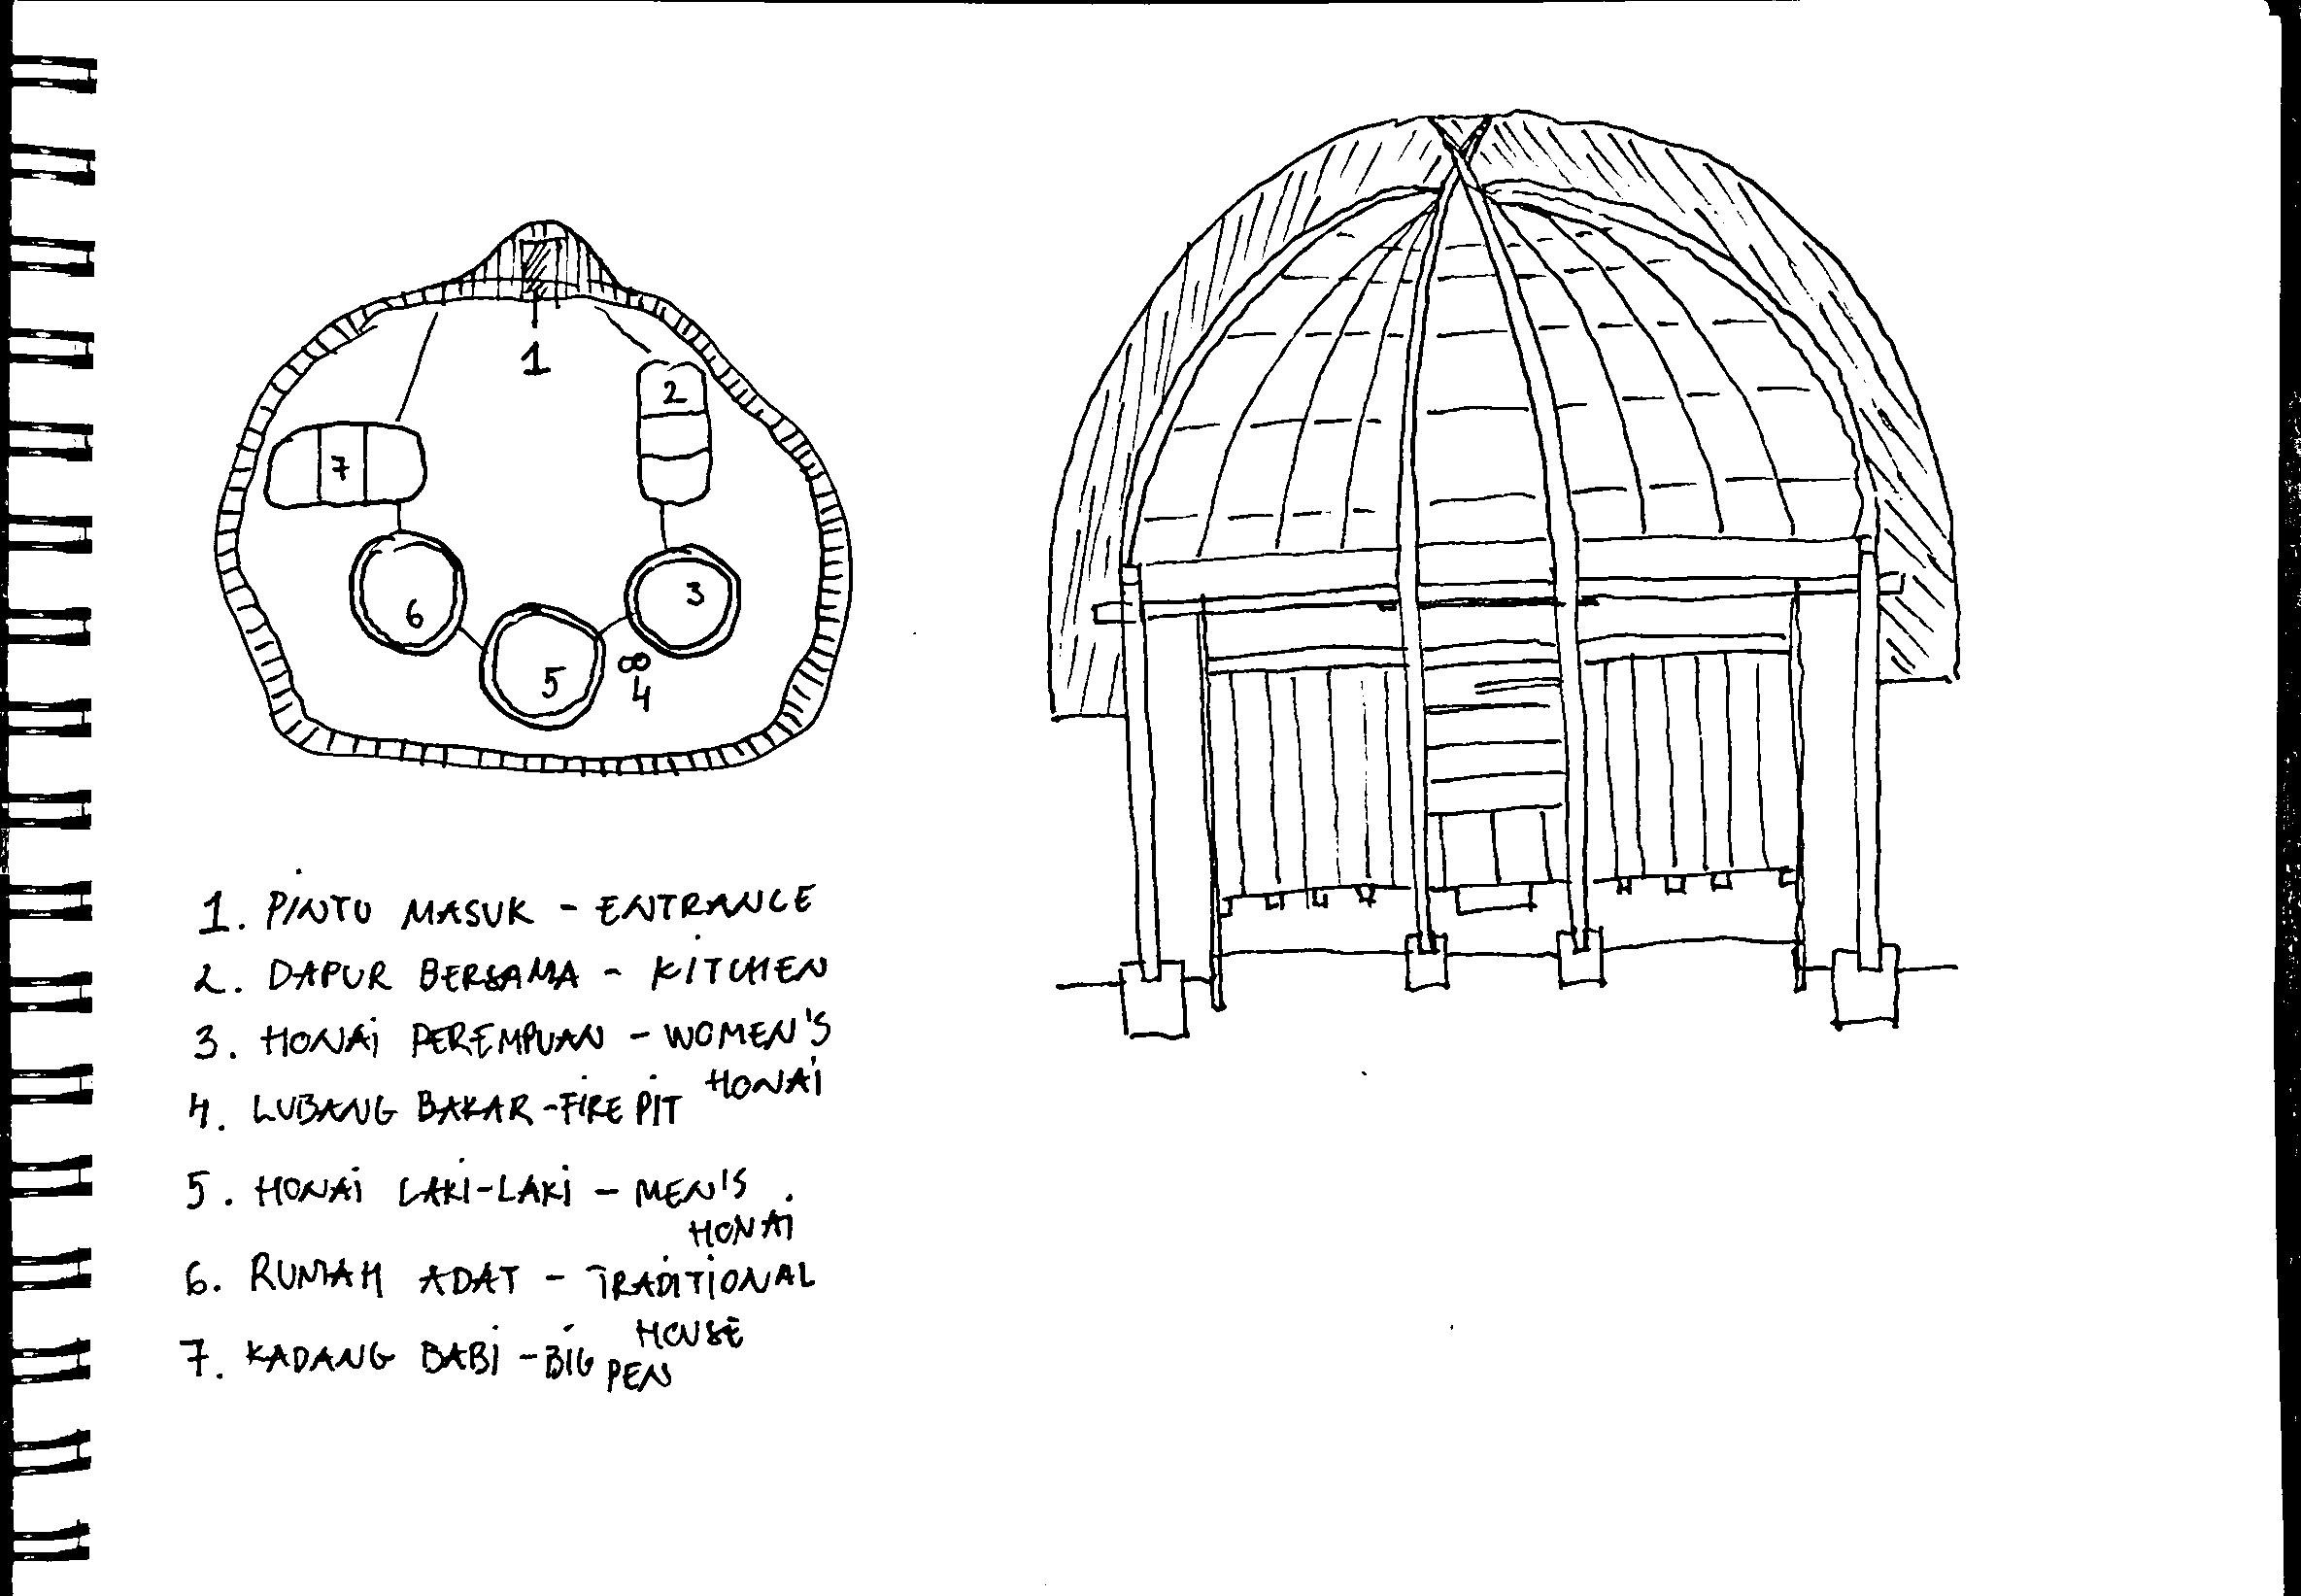 1
2
7
3
6
5
4
1. PINTU MASUK - ENTRANCE
2. DAPUR BERSAMA - KITCHEN
3. HONAI PEREMPUAN - WOMEN'S
HONAI
4. LUBANG BAKAR - FIRE PIT
5. HONAI LAKI-LAKI - MEN'S
HONAI
6. RUMAH ADAT - TRADITIONAL
HOUSE
7. KADANG BABI - BIG
PEN